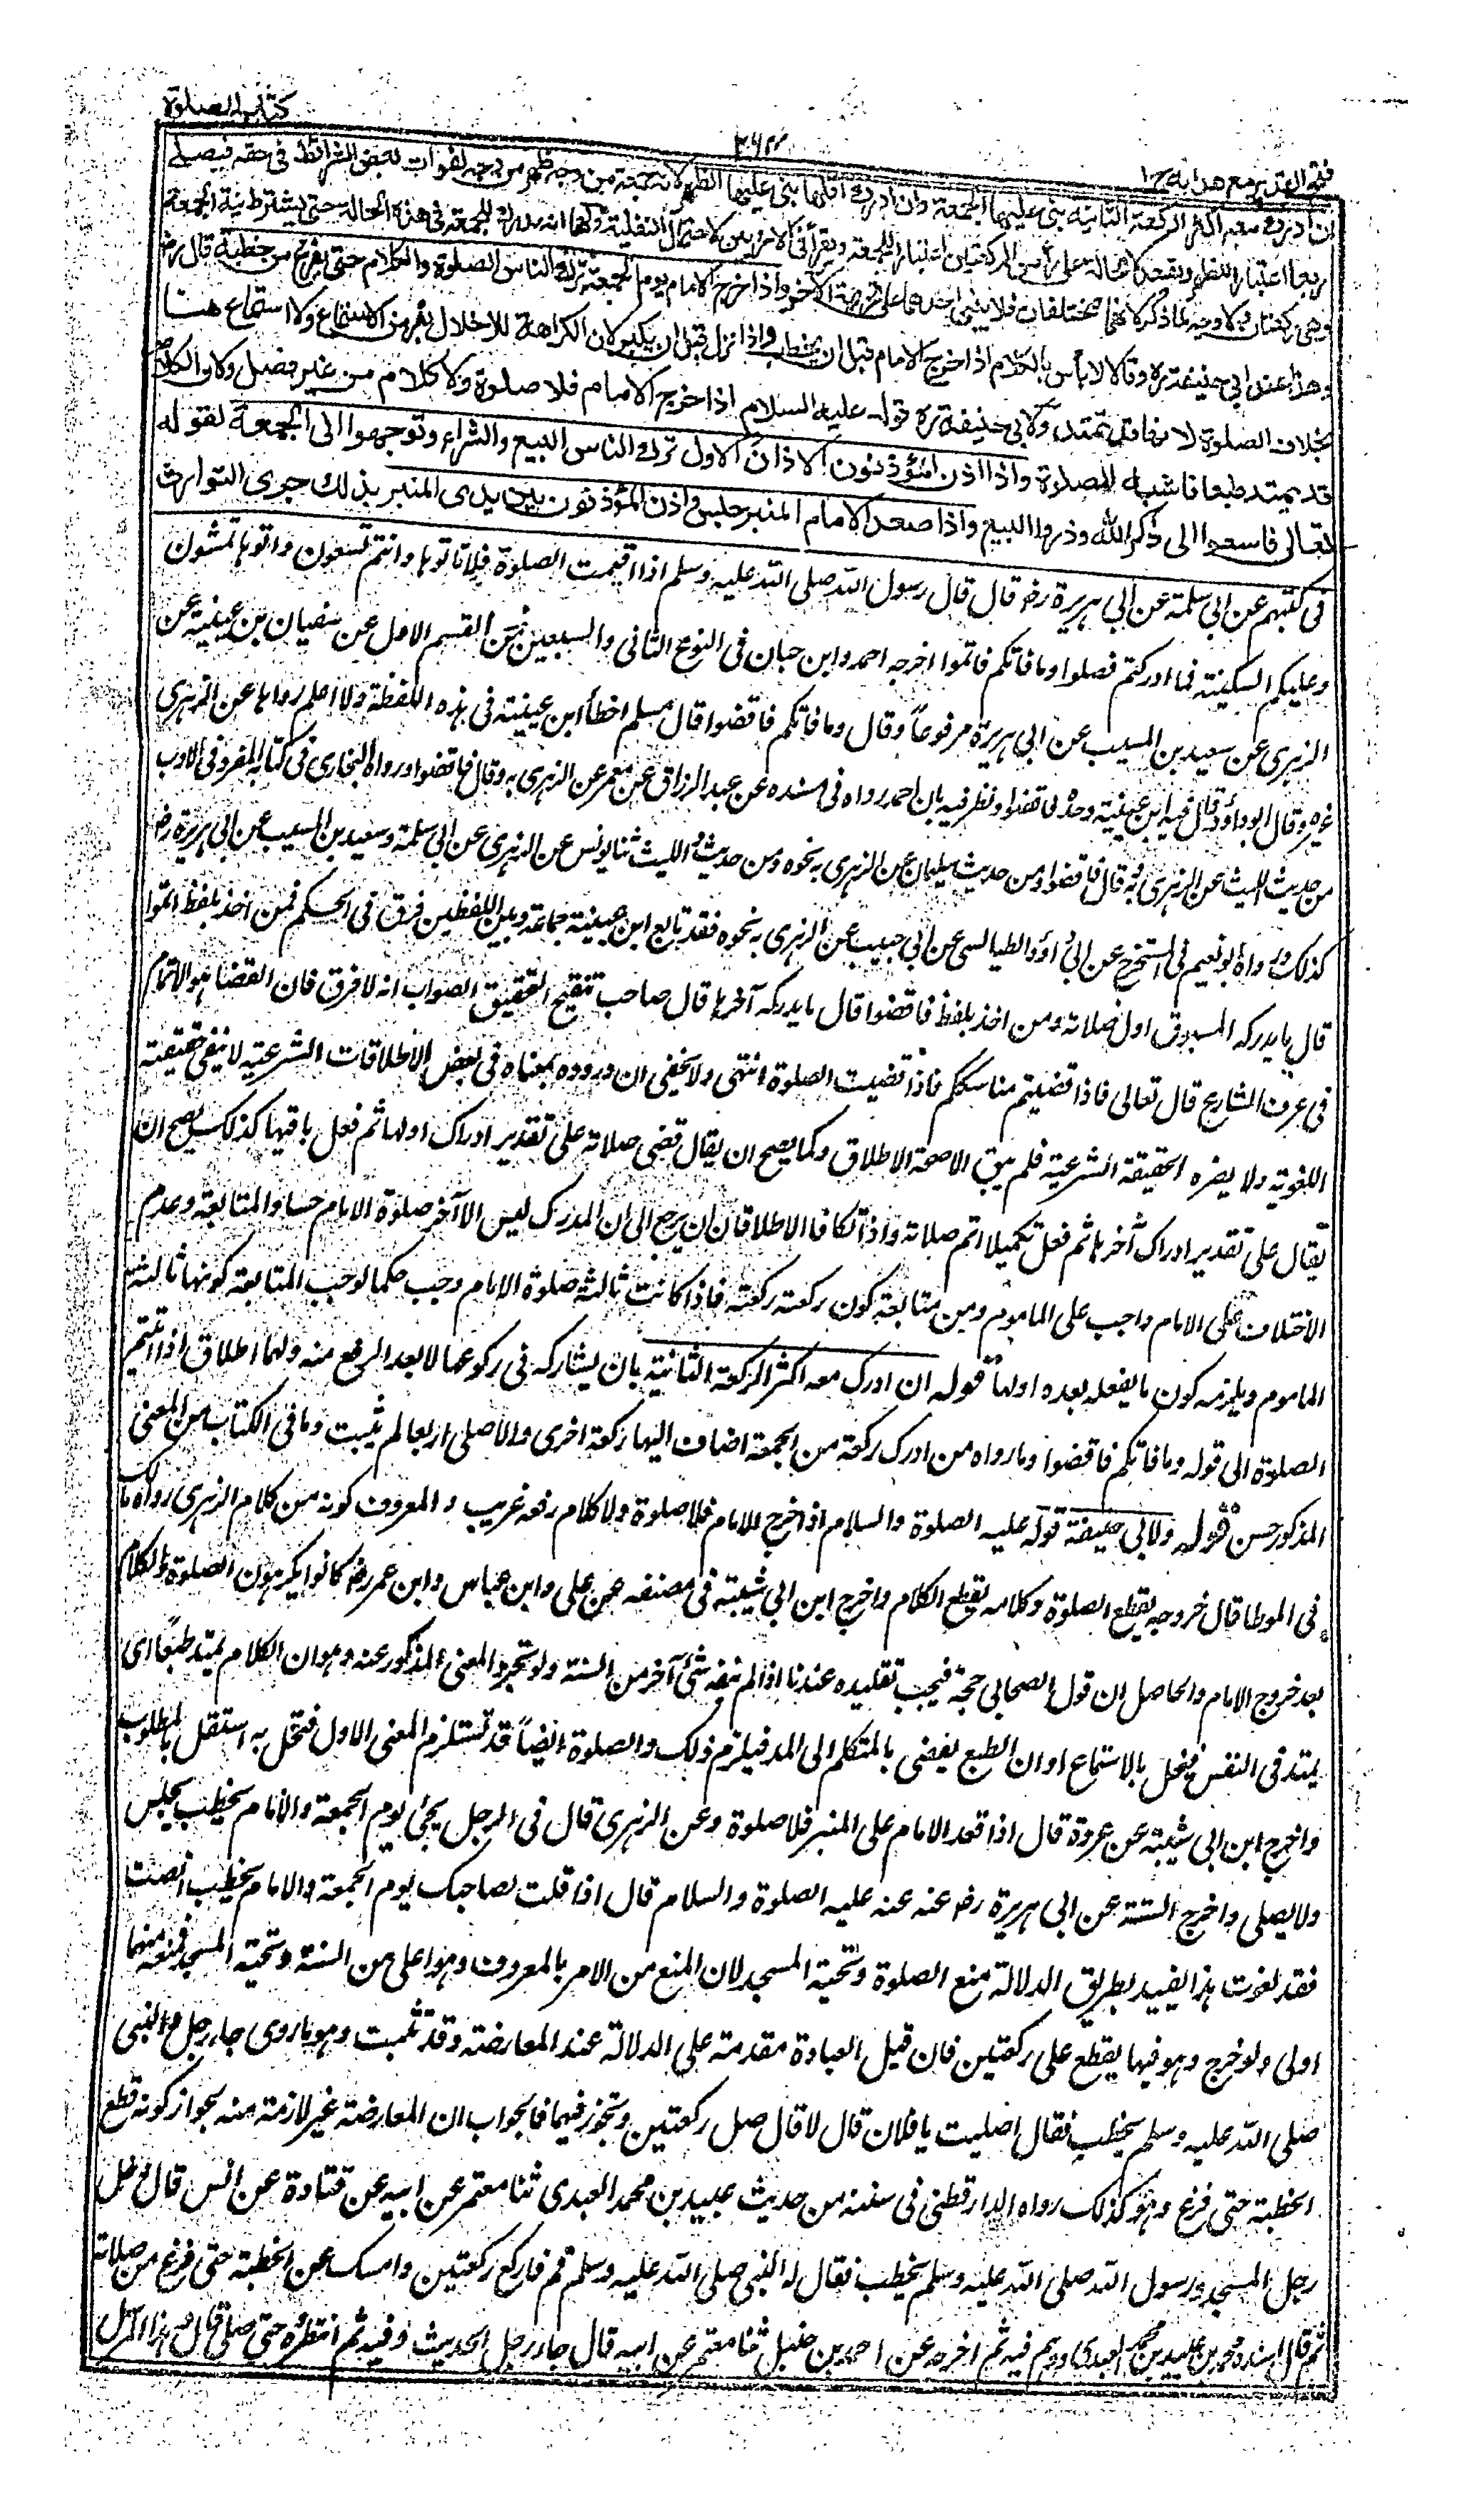 كتاب الصلوة
فتح القدير مع هدايه ج١
ان ادرك معه اكثر الركعة الثانية بنى عليها الجمعة وان ادرك اقلها بنى عليها الظهر لانه جمعة من وجه ظهر من وجه لفوات بعض الشرائط فى حقه فيصلى
اربعا اعتبارا للظهر ويقعد لا محالة على رأس الركعتين اعتبارا للجمعة ويقرأ فى الاخريين لاحتمال النفلية ولهما انه مدرك للجمعة فى هذه الحالة حتى يشترط نية الجمعة
وهى ركعتان ولا وجه لما ذكر لانهما مختلفان فلا يبنى احدهما على تحريمة الآخر واذا خرج الامام يوم الجمعة ترك الناس الصلوة والكلام حتى يفرغ من خطبة قال رض
وهذا عند ابى حنيفة ره وقالا لا بأس بالكلام اذا خرج الامام قبل ان يخطب واذا نزل قبل ان يكبر لان الكراهة للاخلال بفرض الاستماع ولا استماع هنا
بخلاف الصلوة لانها قد تمتد ولابى حنيفة ره قوله عليه السلام اذا خرج الامام فلا صلوة ولا كلام من غير فصل ولان الكلام
قد يمتد طبعا فاشبه الصلوة واذا اذن المؤذنون الاذان الاول ترك الناس البيع والشراء وتوجهوا الى الجمعة لقوله
تعالى فاسعوا الى ذكر الله وذروا البيع واذا صعد الامام المنبر جلس واذن المؤذنون بين يدى المنبر بذلك جرى التوارث
فى كتبهم عن ابى سلمة عن ابى هريرة رض قال قال رسول الله صلى الله عليه وسلم اذا اقيمت الصلوة فلا تاتوها وانتم تسعون واتوها تمشون
وعليكم السكينة فما ادركتم فصلوا وما فاتكم فاتموا اخرجه احمد وابن حبان فى النوع الثانى والسبعين من القسم الاول عن سفيان بن عيينة عن
الزهرى عن سعيد بن المسيب عن ابى هريرة مرفوعاً وقال وما فاتكم فاقضوا قال مسلم اخطأ ابن عيينة فى هذه اللفظة ولا اعلم رواها عن الزهرى
غيره وقال ابو داؤد قال فيه ابن عيينة وحده فاقضوا ونظر فيه بان احمد رواه فى مسنده عن عبد الرزاق عن معمر عن الزهرى به وقال فاقضوا ورواه البخارى فى كتابه المفرد فى الادب
من حديث الليث عن الزهرى به قال فاقضوا ومن حديث سليمان عن الزهرى به نحوه ومن حديث الليث ثنا يونس عن الزهرى عن ابى سلمة وسعيد بن المسيب عن ابى هريرة رض
كذلك ورواه ابو نعيم فى المستخرج عن ابى داؤد الطيالسى عن ابن ابى حبيب عن الزهرى به نحوه فقد تابع ابن عيينة جماعة وبين اللفظين فرق فى الحكم فمن اخذ بلفظ اتموا
قال ما يدركه المسبوق اول صلاته ومن اخذ بلفظ فاقضوا قال ما يدركه آخرها قال صاحب تنقيح التحقيق الصواب انه لا فرق فان القضا هو الاتمام
فى عرف الشارع قال تعالى فاذا قضيتم مناسككم فاذا قضيت الصلوة انتهى ولا يخفى ان وروده بمعناه فى بعض الاطلاقات الشرعية لا ينفى حقيقته
اللغوية ولا يضره الحقيقة الشرعية فلم يبق الا صحة الاطلاق وكما يصح ان يقال قضى صلاته على تقدير ادراك اولها ثم فعل باقيها كذلك يصح ان
يقال على تقدير ادراك آخرها ثم فعل تكميلا اتم صلاته واذا تكافا الاطلاقان يرجع الى ان المدرك ليس الا آخر صلوة الامام حسا والمتابعة وعدم
الاختلاف على الامام واجب على الماموم ومن متابعته كون ركعته ركعته فاذا كانت ثالثة صلوة الامام وجب حكما لوجب المتابعة كونها ثالثة
الماموم ويلزمه كون ما يفعله بعده اولها قوله ان ادرك معه اكثر الركعة الثانية بان يشاركه فى ركوعها لا بعد الرفع منه ولهما اطلاق اذا اتيتم
الصلوة الى قوله وما فاتكم فاقضوا وما رواه من ادرك ركعة من الجمعة اضاف اليها ركعة اخرى والاصلى اربعا لم يثبت وما فى الكتاب من المعنى
المذكور حسن قوله ولابى حنيفة قوله عليه الصلوة والسلام اذا خرج الامام فلا صلوة ولا كلام رفعه غريب والمعروف كونه من كلام الزهرى رواه مالك
فى الموطا قال خروجه يقطع الصلوة وكلامه يقطع الكلام واخرج ابن ابى شيبة فى مصنفه عن على وابن عباس وابن عمر رض كانوا يكرهون الصلوة والكلام
بعد خروج الامام والحاصل ان قول الصحابى حجة فيجب تقليده عندنا اذا لم ينفه شئ آخر من السنة ولو تجرد المعنى المذكور عنه وهو ان الكلام يمتد طبعاً اى
يمتد فى النفس فيخل بالاستماع او ان الطبع يفضى بالمتكلم الى المد فيلزم ذلك والصلوة ايضاً قد تستلزم المعنى الاول فتخل به استقل بالمطلوب
واخرج ابن ابى شيبة عن عروة قال اذا قعد الامام على المنبر فلا صلوة وعن الزهرى قال فى الرجل يجئ يوم الجمعة والامام يخطب يجلس
ولا يصلى واخرج الستة عن ابى هريرة رض عنه عنه عليه الصلوة والسلام قال اذا قلت لصاحبك يوم الجمعة والامام يخطب انصت
فقد لغوت هذا يفيد بطريق الدلالة منع الصلوة وتحية المسجد لان المنع من الامر بالمعروف وهو اعلى من السنة وتحية المسجد فمنعه منهما
اولى ولو خرج وهو فيها يقطع على ركعتين فان قيل العبادة مقدمة على الدلالة عند المعارضة وقد ثبت وهو ما روى جاء رجل والنبى
صلى الله عليه وسلم يخطب فقال اصليت يا فلان قال لا قال صل ركعتين وتجوز فيهما فالجواب ان المعارضة غير لازمة منه بجواز كونه قطع
الخطبة حتى فرغ وهو كذلك رواه الدارقطنى فى سننه من حديث عبيد بن محمد العبدى ثنا معتمر عن ابيه عن قتادة عن انس قال دخل
رجل المسجد ورسول الله صلى الله عليه وسلم يخطب فقال له النبى صلى الله عليه وسلم قم فاركع ركعتين وامسك عن الخطبة حتى فرغ من صلاته
ثم قال اسنده محمد بن عبيد بن محمد العبدى ووهم فيه ثم اخرجه عن احمد بن حنبل ثنا معتمر عن ابيه قال جاء رجل الحديث وفيه ثم انتظره حتى صلى قال وهذا المرسل